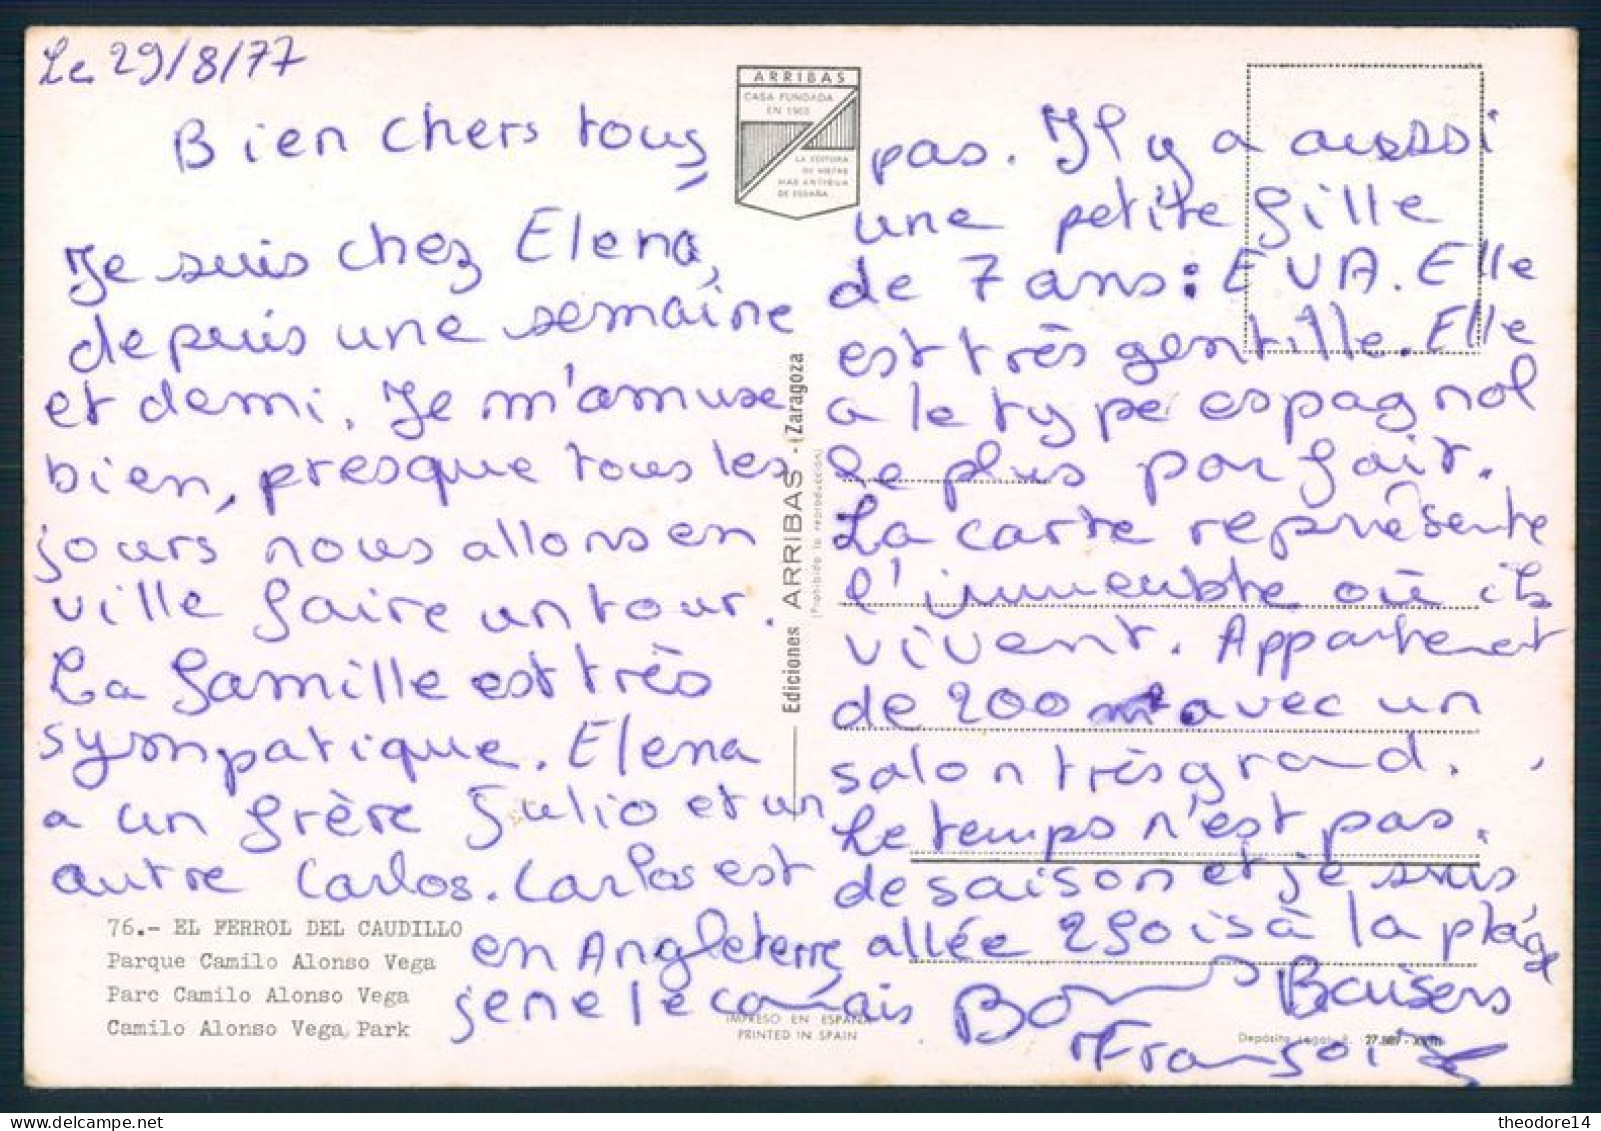 Le 29/8/77
Bien chers tous
Je suis chez Elena,
depuis une semaine
et demi. Je m'amuse
bien, presque tous les
jours nous allons en
ville faire un tour.
La famille est très
sympatique. Elena
a un frère Julio et un
autre Carlos. Carlos est
en Angleterre
je ne le connais
pas. Il y a aussi
une petite fille
de 7 ans : EVA. Elle
est très gentille. Elle
a le type espagnol
le plus parfait.
La carte représente
l'immeuble où ils
vivent. Appartement
de 200 m². avec un
salon très grand.
Le temps n'est pas.
de saison et je suis
allée 2 fois à la plage
Bons Baisers
Françoise
ARRIBAS
CASA FUNDADA
EN 1903
LA EDITORA
DE VISTAS
MAS ANTIGUA
DE ESPAÑA
Ediciones ARRIBAS - Zaragoza
(Prohibida la reproducción)
76.- EL FERROL DEL CAUDILLO
Parque Camilo Alonso Vega
Parc Camilo Alonso Vega
Camilo Alonso Vega Park
IMPRESO EN ESPAÑA
PRINTED IN SPAIN
Depósito Legal B.
theodore14